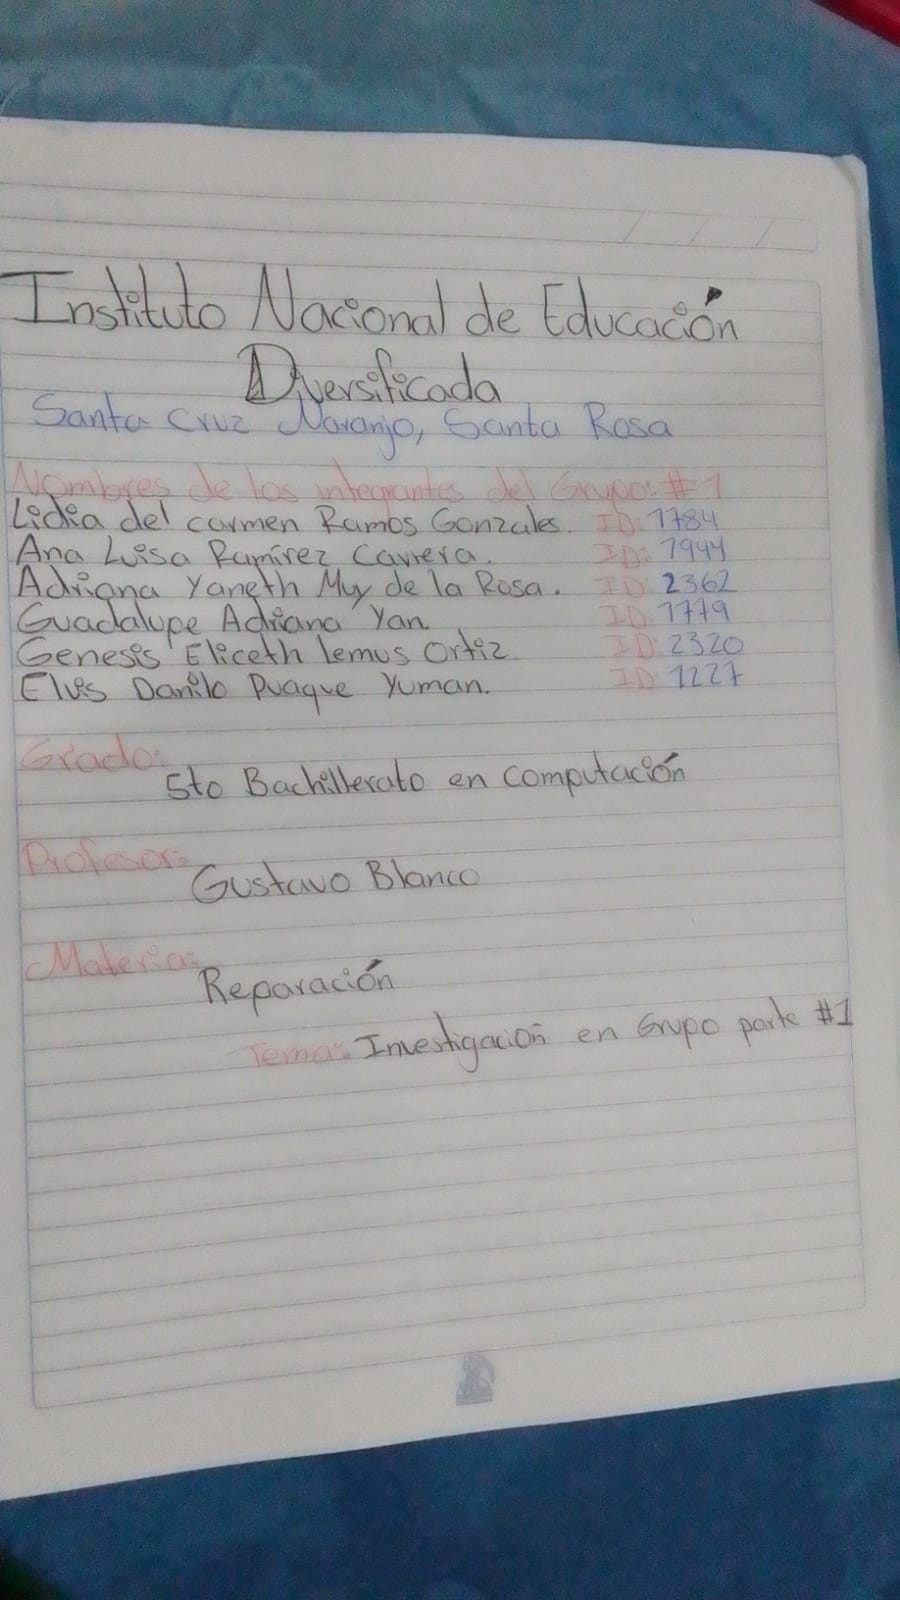 Instituto Nacional de Educación
Diversificada
Santa Cruz Naranjo, Santa Rosa
Nombres de los integrantes del Grupo: #1
Lidia del carmen Ramos Gonzales. ID: 1784
Ana Luisa Ramírez Carrera. ID: 1944
Adriana Yaneth Muy de la Rosa. ID: 2362
Guadalupe Adriana Yan. ID: 1779
Genesis Eliceth lemus Ortiz. ID: 2320
Elvis Danilo Puaque Yuman. ID: 1227
Grado:
5to Bachillerato en computación
Profesor:
Gustavo Blanco
Materia:
Reparación
Tema: Investigación en Grupo parte #1